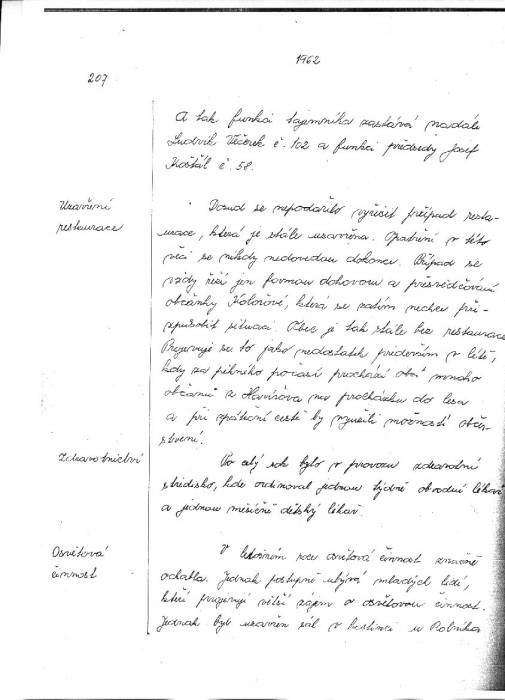 1962
207
A tak funkci tajemníka zastává nadále
Ludvík Večerek č. 102 a funkci předsedy Josef
Košťál č. 58.
Uzavření
restaurace
Dosud se nepodařilo vyřešit případ resta-
urace, která je stále uzavřena. Opatření v této
věci se nikdy nedovedou dokonce. Případ se
vždy řeší jen formou dohovoru a přesvědčování
občanky Kolořové, která se zatím nechce při-
způsobit situaci. Obec je tak stále bez restaurace
Projevuje se to jako nedostatek především v létě,
kdy za pěkného počasí prochází obcí mnoho
občanů z Havířova na procházku do lesa
a při zpáteční cestě by využili možností občer-
stvení.
Zdravotnictví
Po celý rok bylo v provozu zdravotní
středisko, kde ordinoval jednou týdně obvodní lékař
a jednou měsíčně dětský lékař.
Osvětová
činnost
V letošním roce osvětová činnost značně
ochabla. Jednak postupně ubývá mladých lidí,
kteří projevují větší zájem o osvětovou činnost.
Jednak byl uzavřen sál v hostinci u Rolníka